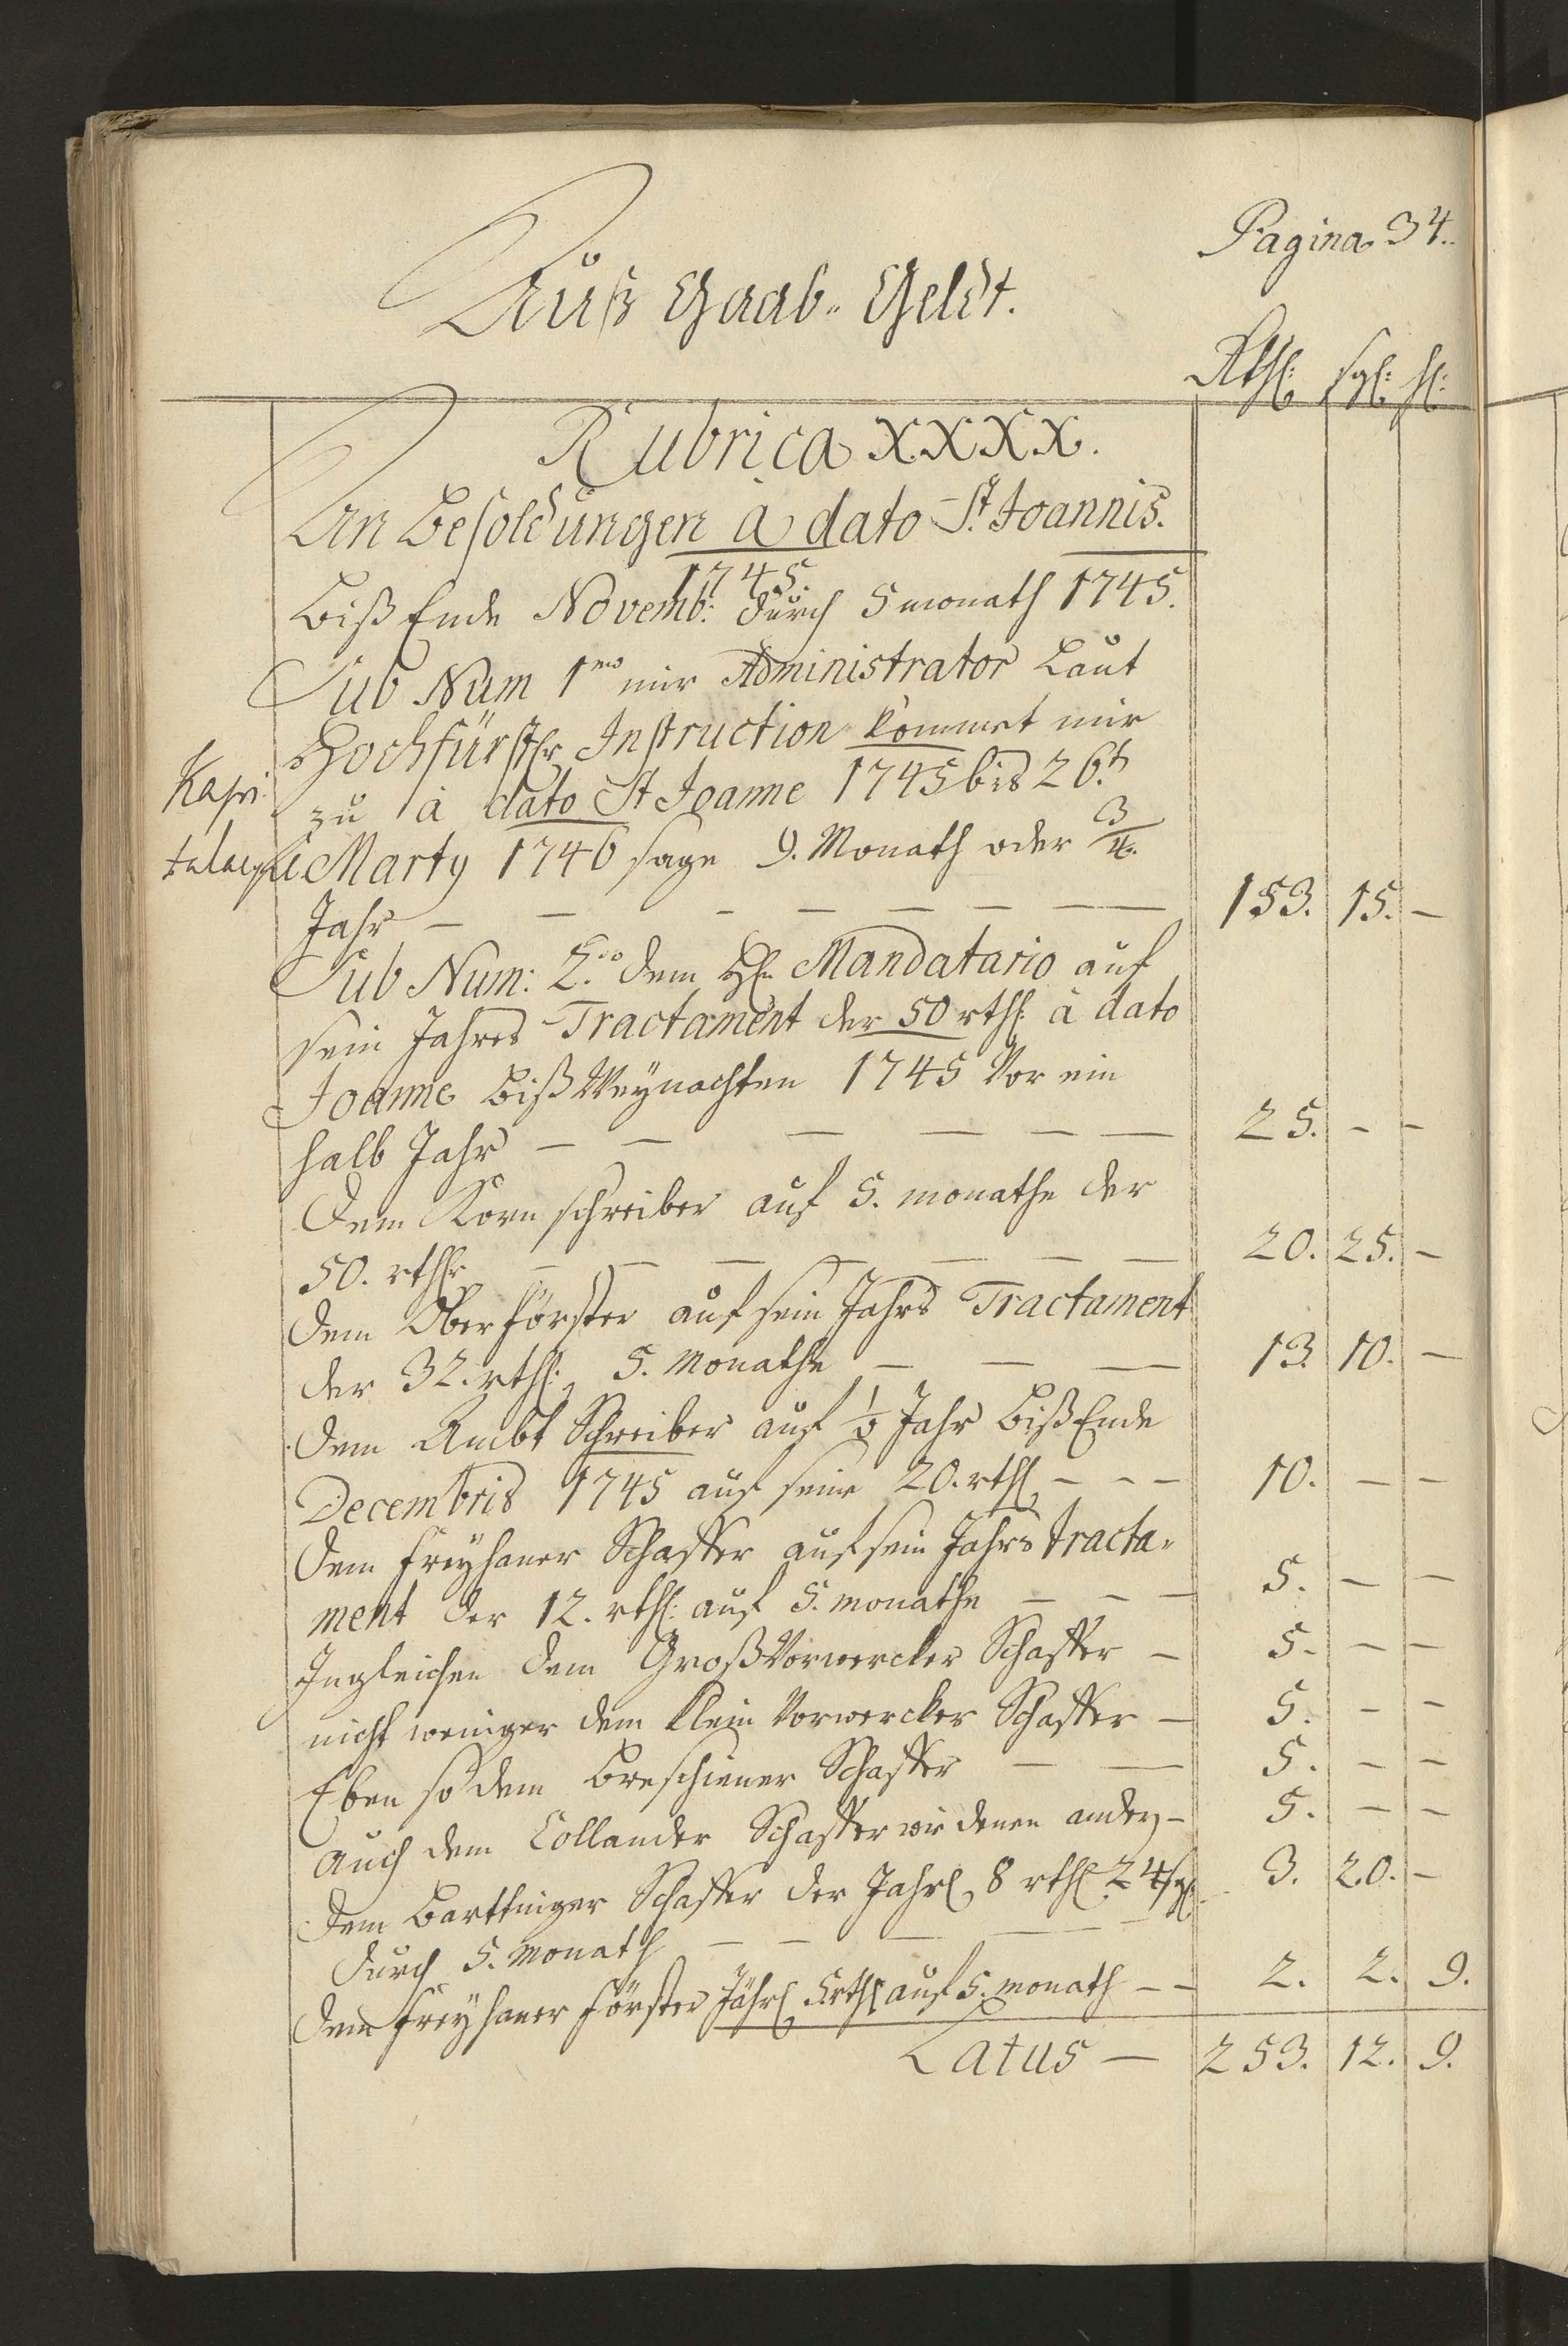 Pagina 34.
Auß Gaab- Geldt.
Rthl: sgl: hl:
Rubrica XXXX.
An Besoldungen à dato St. Joannis.
1745.
Biß Ende Novemb: durch 5 monath 1745.
Sub Num 1mo mir Administrator Laut
Hochfürstlr Instruction kommet mir
zu à dato St Joanne 1745 bis 26t
Marty 1746 sage 9. Monath oder 3/4.
Jahr — — — — — — — 153. 15. —
Sub Num: 2do dem H: Mandatario auf
sein Jahres Tractament der 50 rthl: à dato
Joanne Biß Weynachten 1745 Vor ein
halb Jahr — — — — — — 25. — —
Dem Korn schreiber auf 5. monathe der
50. rthlr — — — — — — — 20. 25. —
Dem Oberförster auf sein Jahrs Tractament
der 32. rthl: 5. Monathe — — — 13. 10. —
Dem Ambt Schreiber auf 1/2 Jahr Biß Ende
Decembris 1745 auf seine 20. rthl — — — 10. — —
Dem Freyhaner Schaffer auf sein Jahrs tracta-
ment der 12. rthl: auf 5. monathe — — — 5. — —
Ingleichen dem Groß Vorwercker Schaffer — 5. — —
nicht weniger dem Klein Vorwercker Schaffer — 5. — —
Eben so dem Breschiner Schaffer — — 5. — —
auch dem Collander Schaffer wie denen andern — 5. — —
Dem Barttniger Schaffer der Jahrl 8 rthl 24 sgl 3. 20. —
durch 5. Monath — — — — —
Dem Freyhaner Förster Jährl 5 rthl auf 5. monath — — 2. 2. 9.
Latus — 253. 12. 9.